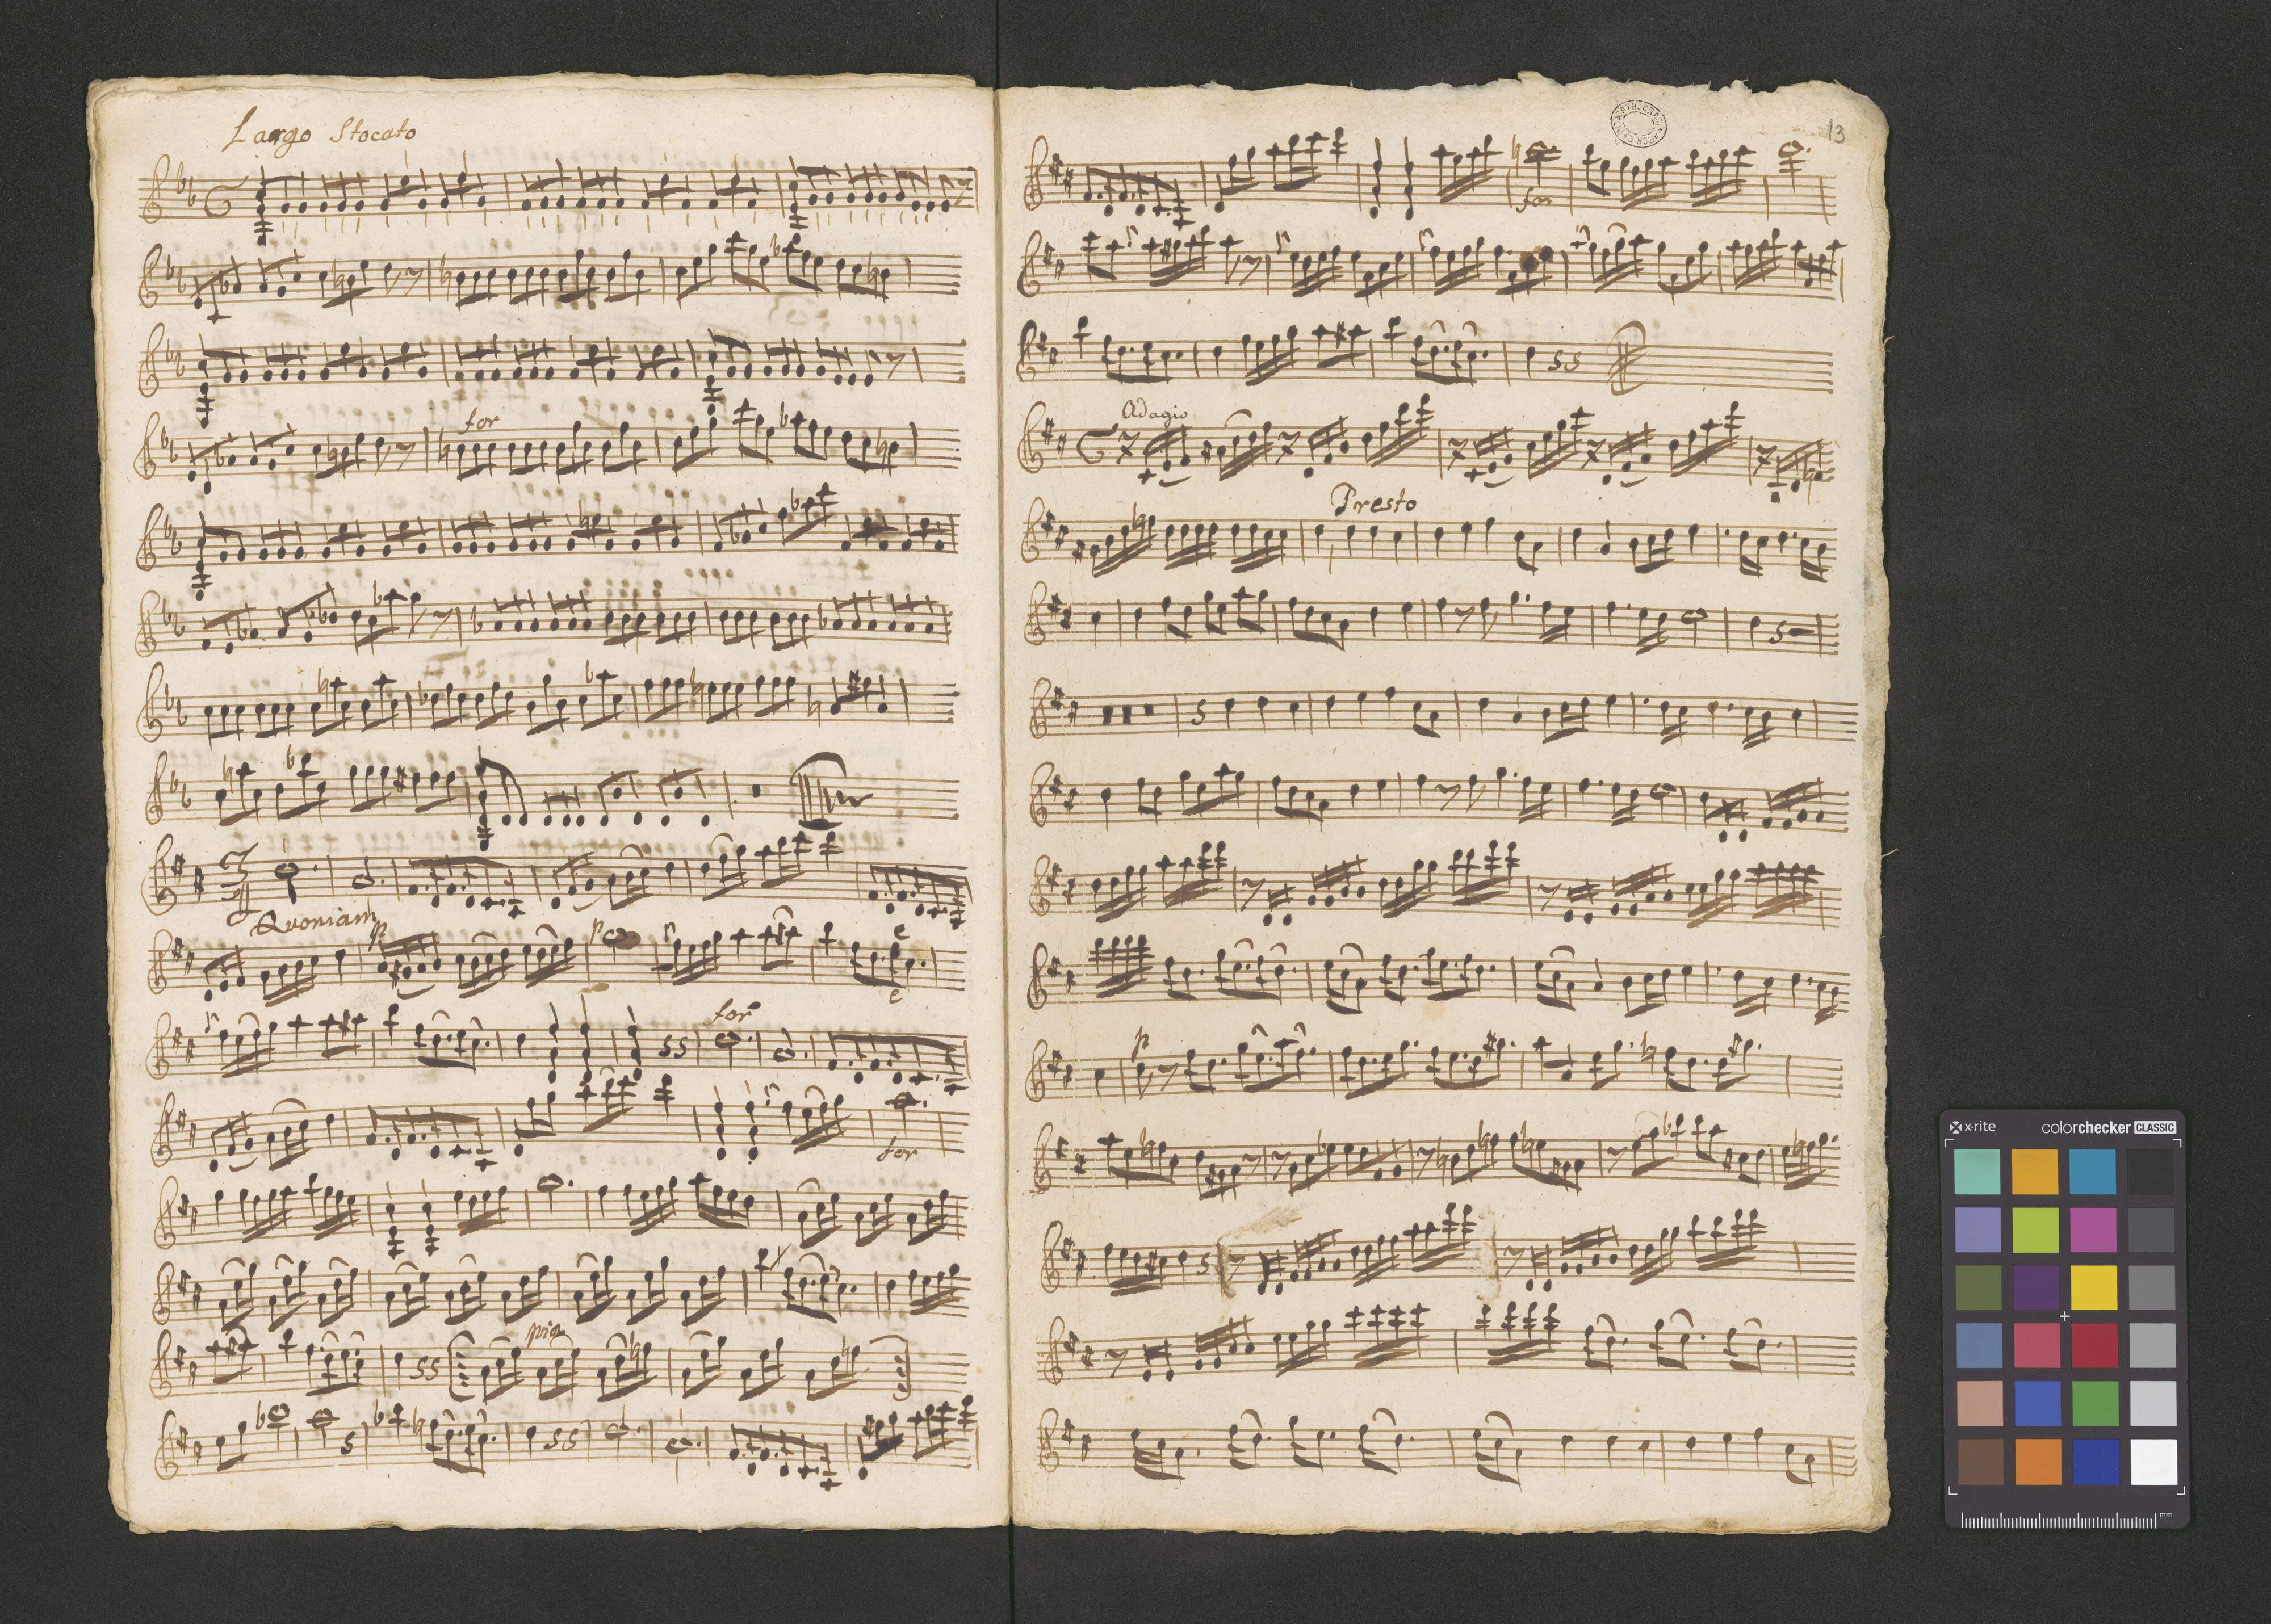 Largo Stocato
for
Quoniam
p
p
for
for
pia
13
for
Adagio
Presto
p
x-rite
colorchecker CLASSIC
mm